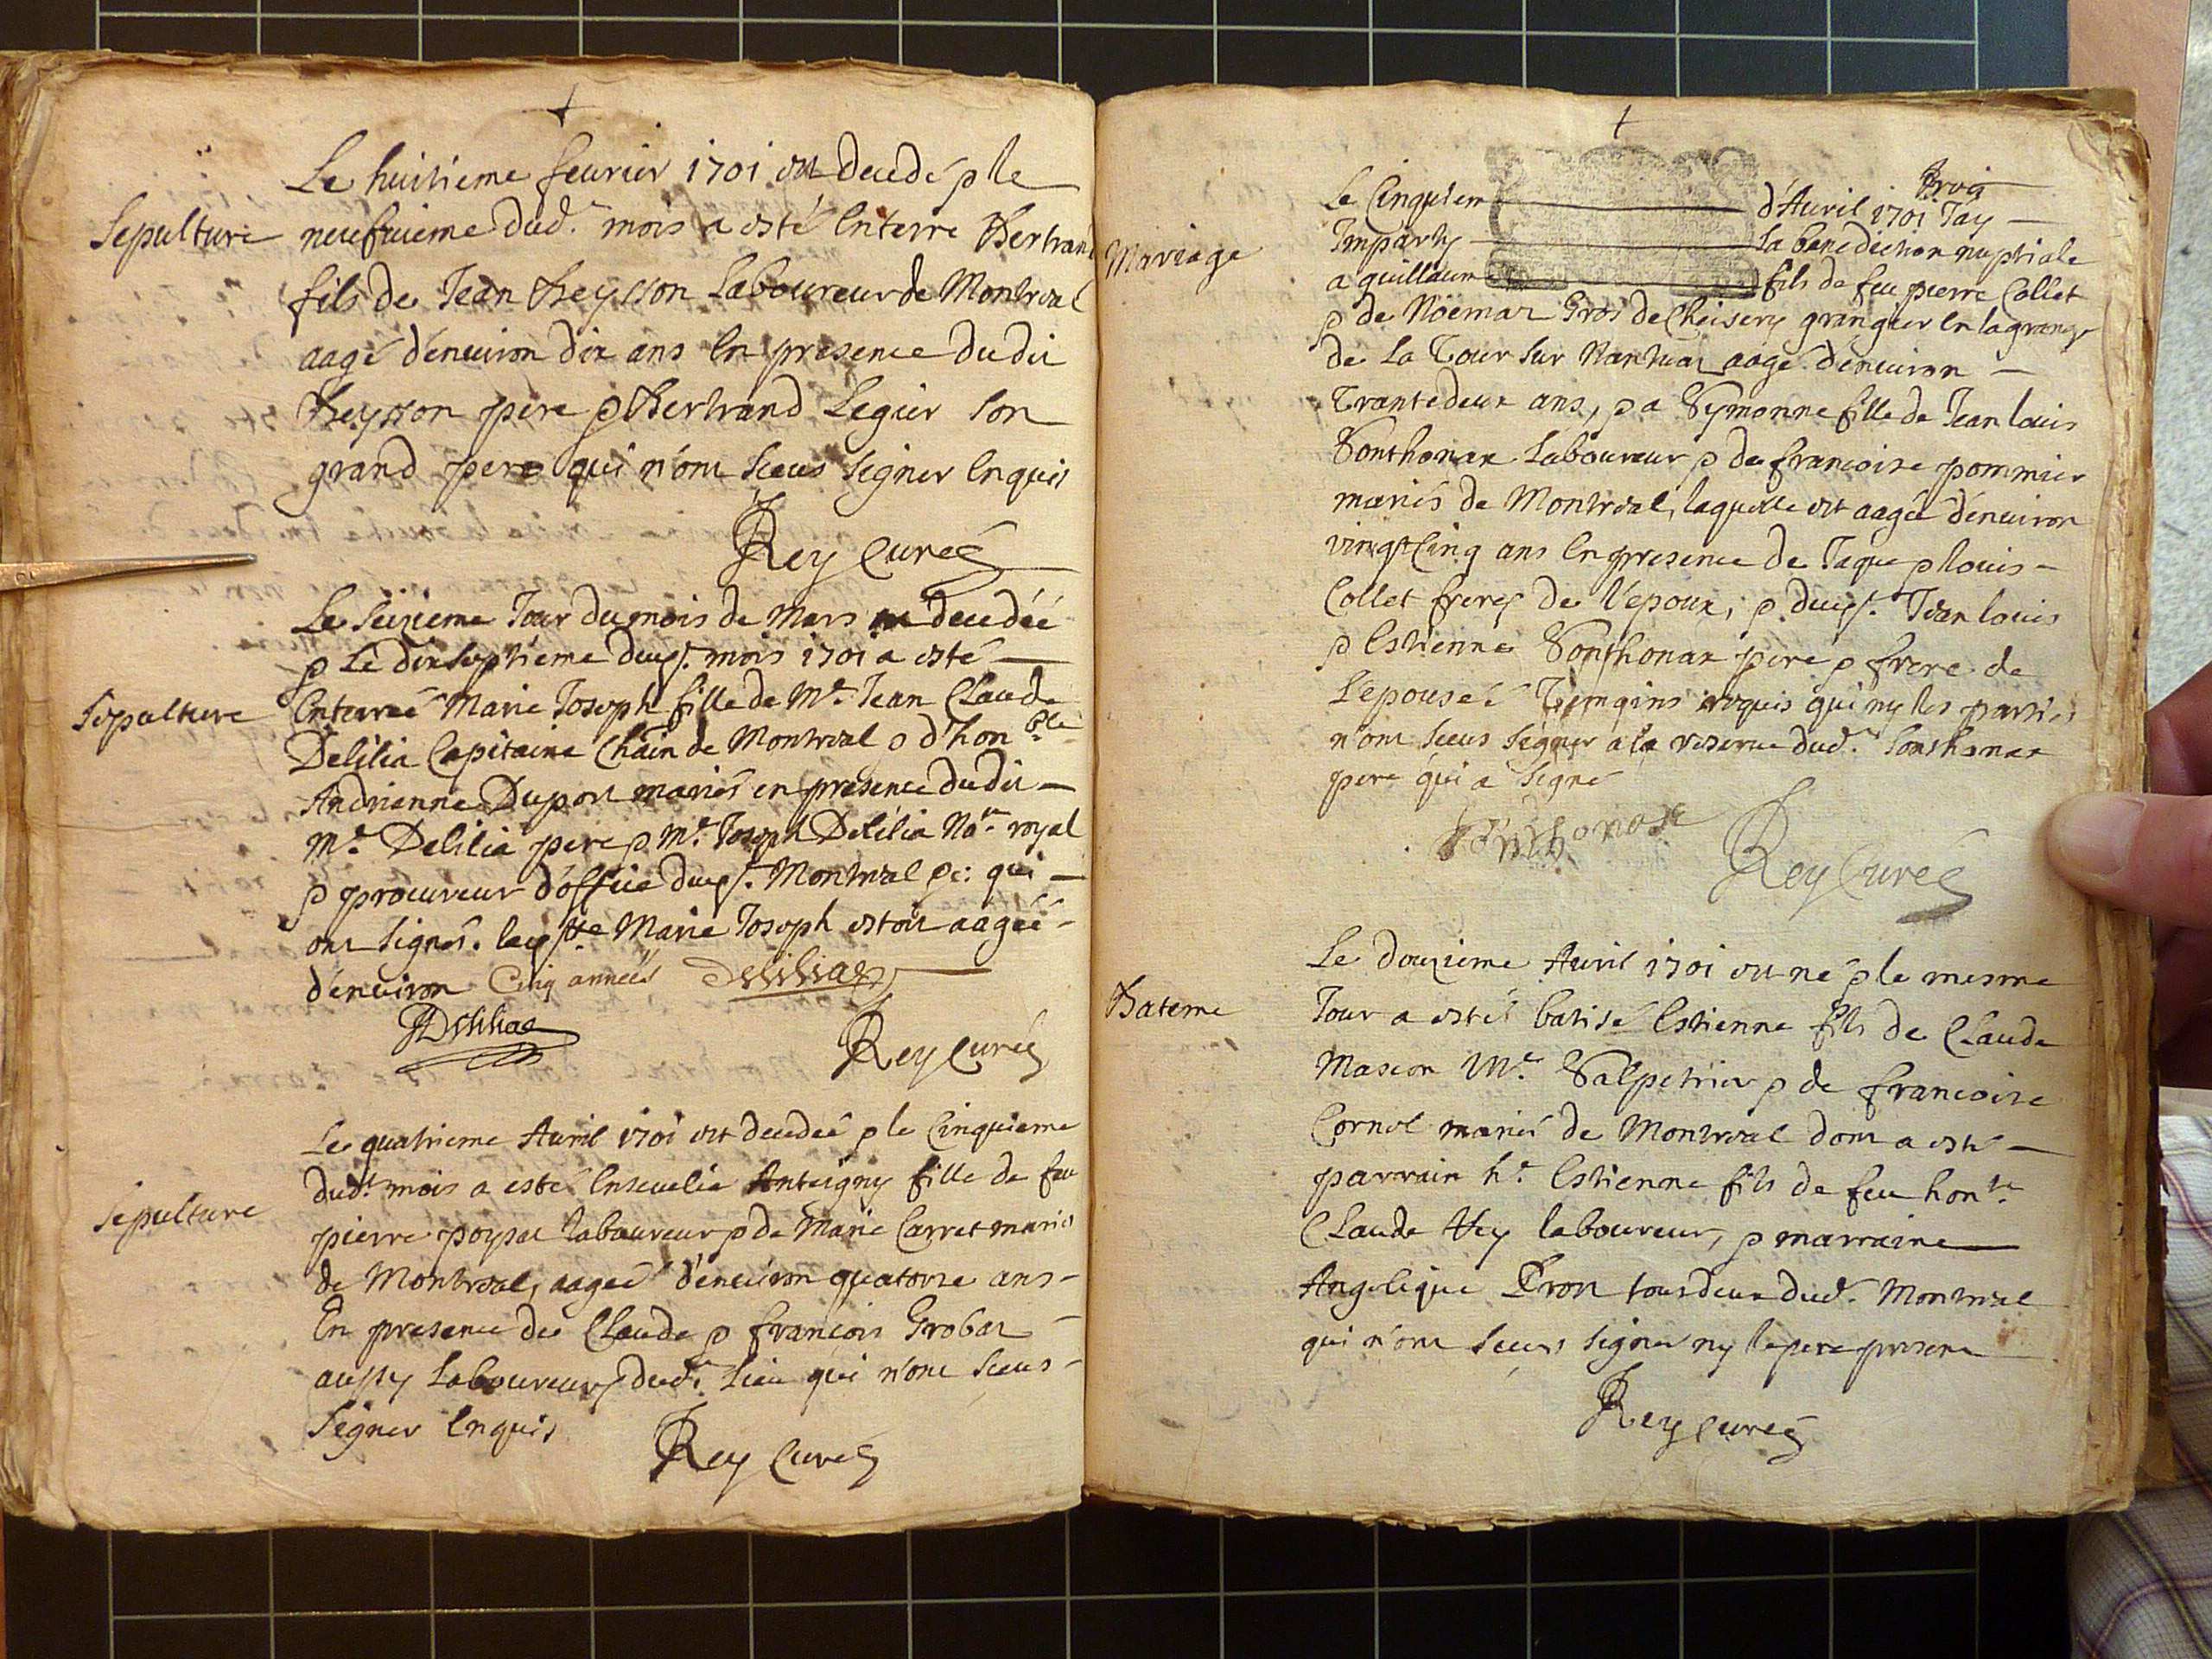 Le huitieme feurier 1701 est decedé & le
Sepulture
neufuieme dud. mois a esté Enterre Bertrand
fils de Jean Beysson Laboureur de Montreal
aagé d'enuiron dix ans En presence dudit
Beysson pere & Bertrand Legier son
grand pere qui n'ont sceus signer Enquis
Rey Curé
Le seizieme Jour du mois de Mars decedéé
& Le dixseptieme duest. mois 1701 a esté
Sepulture
Enterreé Marie Joseph fille de Me. Jean Claude
Delilia Capitaine Chain de Montreal & d'honble
Andrienne Duport mariés en presence dudit
Me. Delilia pere & Me. Joseph Delilia Nore. royal
& procureur d'office Montreal qui
ont signés. Marie Joseph estoit aageé
d'enuiron Cinq annéés Delilia
JDelilia
Rey Curé
Le quatrieme Auril 1701 est decedeé & le Cinquieme
dud. mois a esté Enseuelie Anteigny fille de feu
Sepulture
pierre poysat laboureur & de Marie Carret mariés
de Montreal, aageé d'enuiron quatorze ans
En presence de Claude & françois Grobas
aussy Laboureurs dud. Lieu qui n'ont sceus
signer Enquis
Rey Curé
Le Cinquiem d'Auril 1701 J'ay
Imparty La benediction nuptiale
Mariage
a guillaume fils de feu pierre Collet
& de Noemaz Gros de Cheisery grangier En lagrange
de La Tour sur Nantuaz aagé d'enuiron
Trantedeux ans, & a Symonne fille de Jean louis
Sonthonax Laboureur & de francoise pommier
mariés de Montreal, laquelle est aagéé d'enuiron
vingtCinq ans En presence de Jaque & louis
Collet freres de l'epoux, & Jean louis
& Estienne Sonthonax pere & frere de
L'epouseé Temoins requis qui ny les parties
n'ont sceus signer a la reserue dud. Sonthonax
pere qui a signé
Sonthonax
Rey Curé
Le douzieme Auril 1701 est né & le mesme
Bateme
Jour a esté batisé Estienne fils de Claude
Masson Me. Salpetrier & de francoise
Cornet mariés de Montreal dont a esté
parrain h. Estienne fils de feu honte
Claude Rey laboureur, & marraine
Angelique tous deux dud. Montreal
qui n'ont sceus signer ny le pere present
Rey Curé